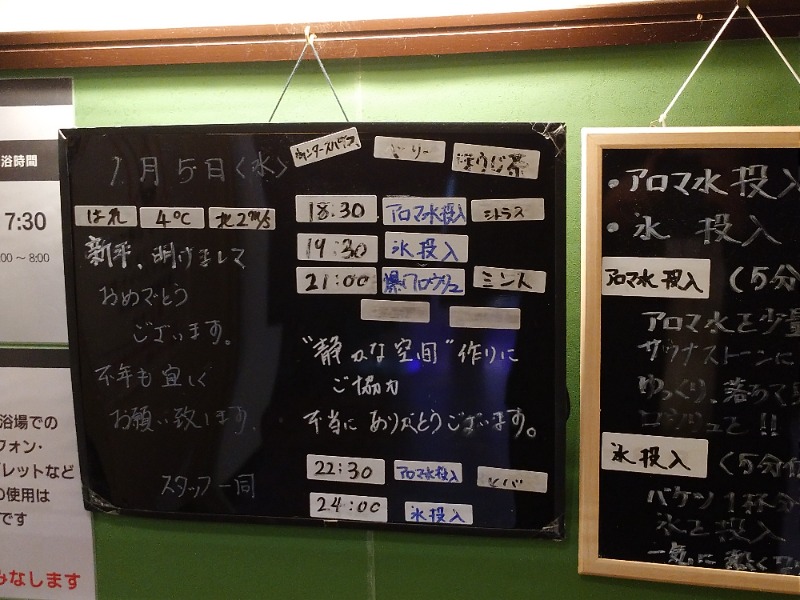 浴時間
7:30
00 ~ 8:00
浴場での
フォン・
ブレットなど
の使用は
です
みなします
1月5日〈水〉
はれ 4℃ 北2m/s
新年、明けまして
おめでとう
ございます。
本年も宜しく
お願い致します。
スタッフ一同
ほうじ茶
18:30 アロマ水投入 シトラス
19:30 氷投入
21:00 爆アロウリュ ミント
"静かな空間"作りに
ご協力
本当にありがとうございます。
22:30 アロマ水投入 ヒバ
24:00 氷投入
・アロマ水投入
・氷 投入
アロマ水投入 (5分
アロマ水を少量
サウナストーンに
ゆっくり、落
ロウリュを!!
氷投入 (5分
バケツ1杯分
氷を投入
一気に熱く